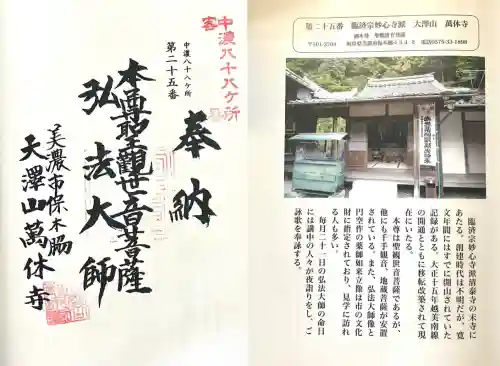 中濃八十八ケ所
霊
中濃八十八ケ所
第二十五番
奉納
本尊聖観世音菩薩
弘法大師
美濃市保木脇
天澤山萬休寺
第二十五番 臨済宗妙心寺派 大澤山 萬休寺
御本尊 聖観世音菩薩
臨済宗妙心寺派清泰寺の末寺に
あたる。創建時代は不明だが、寛
文年間にはすでに開山されていた
記録がある。大正十五年越美南線
の開通とともに移転改築されて現
在にいたる。
本尊は聖観世音菩薩であるが、
他にも千手観音、地蔵菩薩が安置
されている。また、弘法大師像と
円空作の薬師如来立像は市の文化
財に指定されており、見学に訪れ
る人も多い。
毎月二十一日の弘法大師の命日
には講中の人々が夜詣りをし、ご
詠歌を奉詠する。